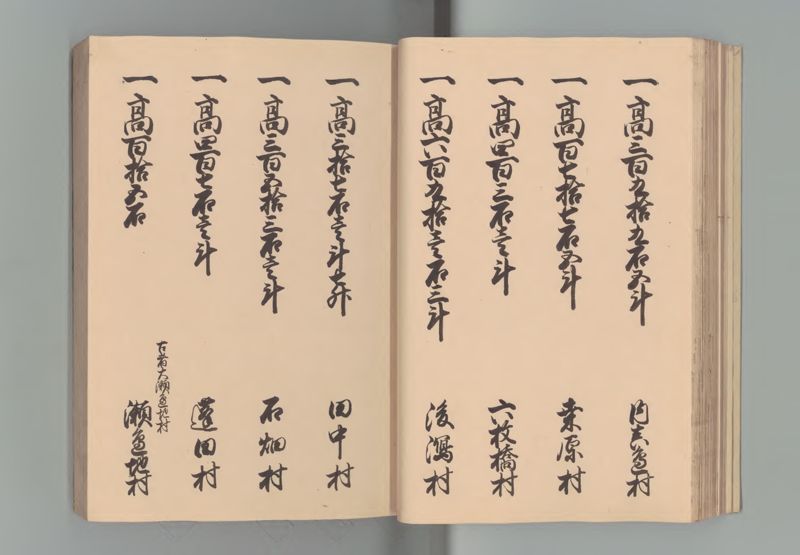 一高三百九拾九石五斗 内真部村
一高百七拾七石五斗 奥内村
一高四百三石壱斗 六枚橋村
一高六百九拾壱石三斗 後潟村
一高三拾七石壱斗七升 田中村
一高三百五拾三石壱斗 石畑村
一高四百七石壱斗 蓬田村
一高百拾五石
古者大瀬辺地村
瀬辺地村